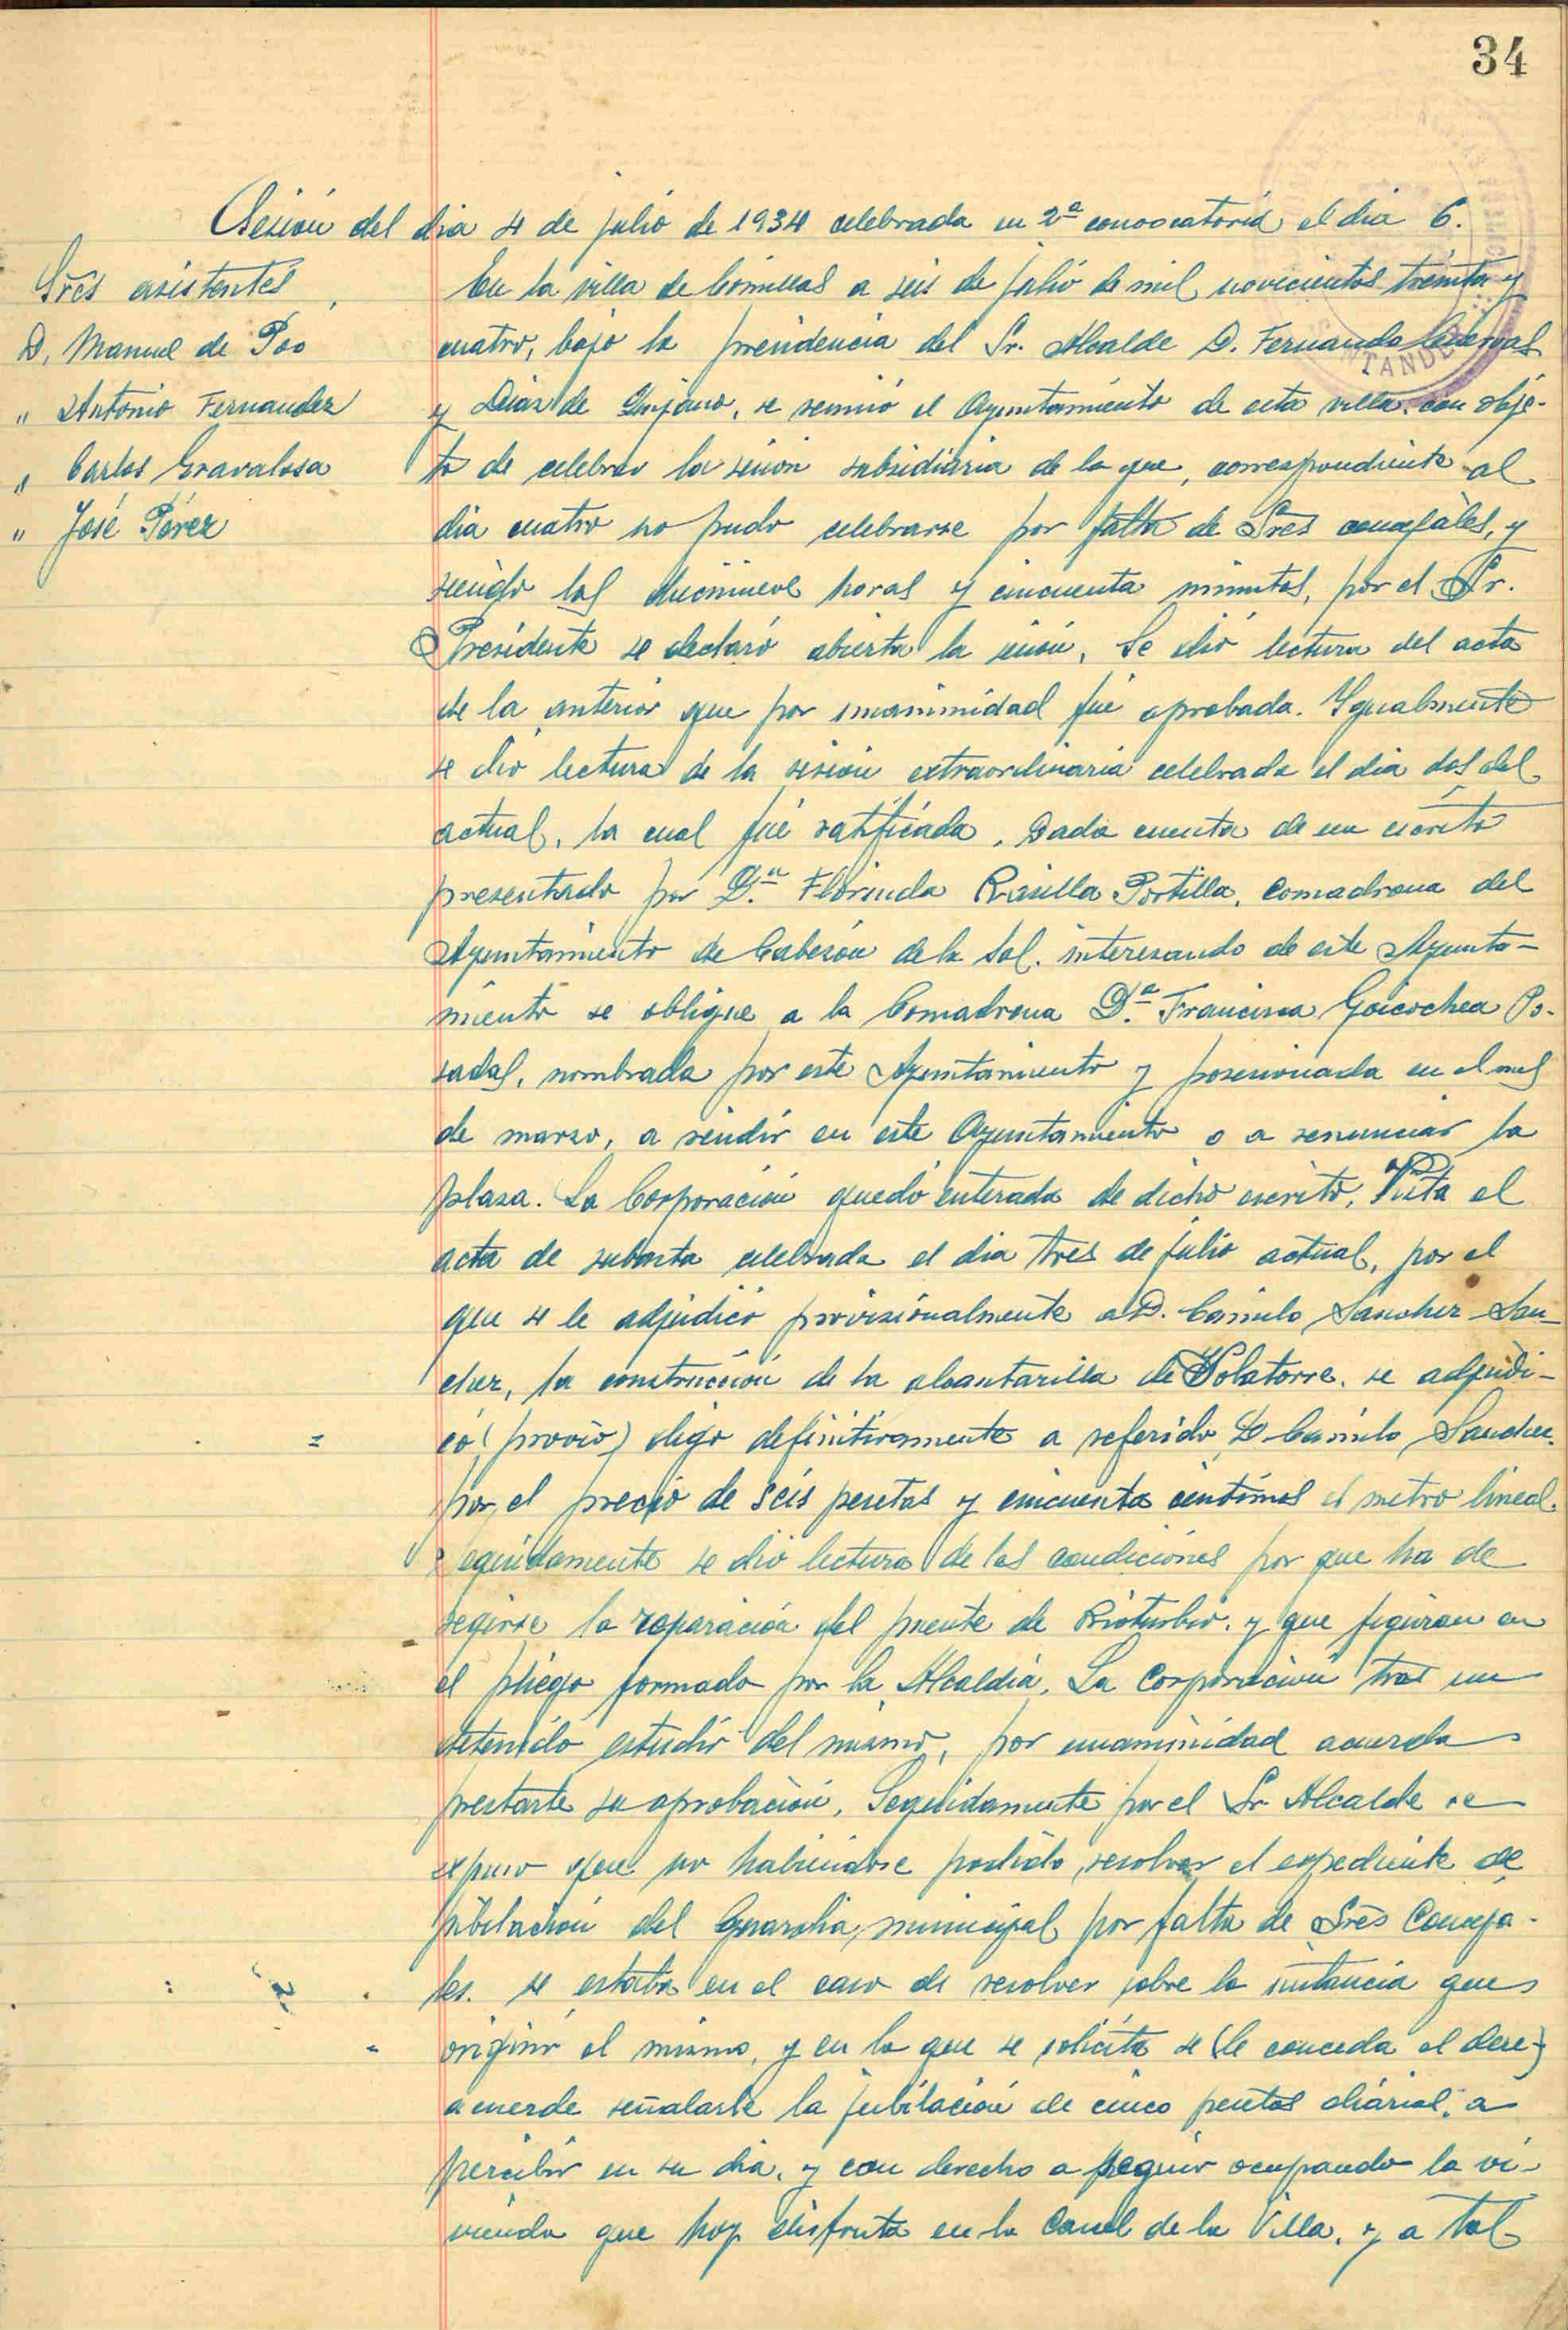 34
Sesión del dia 4 de julio de 1934 celebrada en 2ª convocatoria el dia 6.
Sres asistentes
D. Manuel de Poo
" Antonio Fernandez
" Carlos Gravalosa
" José Pérez
En la villa de Comillas a seis de julio de mil novecientos treinta y
cuatro, bajo la presidencia del Sr. Alcalde D. Fernando
y Diaz de Quijano, se reunió el Ayuntamiento de esta villa, con obje-
to de celebrar la sesión subsidiaria de la que, correspondiente al
dia cuatro no pudo celebrarse por falta de Sres concejales, y
siendo las diecinueve horas y cincuenta minutos, por el Sr.
Presidente se declaró abierta la sesión. Se dió lectura del acta
de la anterior que por unanimidad fué aprobada. Igualmente
se dió lectura de la sesión extraordinaria celebrada el dia dos del
actual, la cual fué ratificada. Dada cuenta de un escrito
presentado por Dª Florinda Rasilla Portilla, Comadrona del
Ayuntamiento de Cabezón de la Sal. interesando de este Ayunta-
miento se obligue a la Comadrona Dª Francisca Goicochea Po-
sadas, nombrada por este Ayuntamiento y posesionada en el mes
de marzo, a rendir en este Ayuntamiento o a renunciar la
plaza. La Corporación quedó enterada de dicho escrito. Vista el
acta de subasta celebrada el dia tres de julio actual, por el
que se le adjudicó provisionalmente a D. Camilo Sanchez San-
chez, la construcción de la alcantarilla de Solatorre. se adjudi-
= có (provio) digo definitivamente a referido D. Camilo Sanchez.
por el precio de seis pesetas y cincuenta centimos el metro lineal.
Seguidamente se dió lectura de las condiciones por que ha de
regirse la reparación del puente de Rioturbio. y que figuran en
el pliego formado por la Alcaldia. La Corporación tras un
detenido estudio del mismo, por unanimidad acuerda
prestarte su aprobación. Seguidamente por el Sr. Alcalde se
expuso que no habiendose podido resolver el expediente de
jubilación del Guardia municipal por falta de Sres Conceja-
les. se estaba en el caso de resolver sobre la instancia que
originó el mismo, y en la que se solicita se (le conceda el dere-)
acuerde señalarle la jubilación de cinco pesetas diarias, a
percibir en su dia. y con derecho a seguir ocupando la vi-
vienda que hoy disfruta en la Carcel de la Villa. y a tal